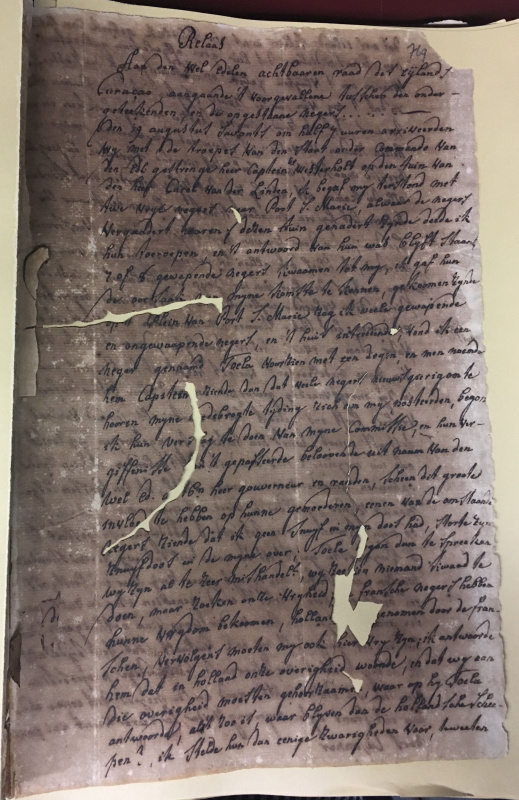 Relaas
Aan den wel Edelen achtbaaren raad des Eylands
Curacao aangaande 't voorgevallene tusschen den onder
geteekenden en de opgestaane negers
den 19 augustus 's avonds om half 7 uuren arriveerden
wy met de troupes van den staat onder Commando van
den Edl gestrenge heer Captein Westerholt op den tuin van
den heer Carel van der Linden, ik begaf my terstond met
twe negers naar Port S. Marie, alwaar de negers
vergaadert waaren, deesen tuin genadert zynde deede ik
hun toeroepen, en 't antwoord van hun was blyft staan
7 of 8 gewapende negers quaamen tot my, ik gaf hun
de oorzaak myne komste te kennen, gekoomen zynde
op 't plein van Port S. Marie zag ik veele gewapende
en ongewaapende negers, en 't huis intreedende, vond ik een
neger genaamd Toela voorsien met een degen en men noemde
hem Capitein ziende dan dat veele negers nieuwsgierig om te
hooren myne gebragte tyding zich om my posteerden, begon
ik hun verslag te doen van myne Commissie, en hun ver-
giffenisse van 't gepasseerde beloovende uit naam van den
wel Ed. heer gouverneur en raaden, scheen dit groote
invloed te hebben op hunne gemoederen, eenen van de omstaande
negers ziende dat ik geen snuyf in myne doos had, storte zyn
snuyfdoos in de myne over, Toela begon dan te spreeken
wy zyn al te zeer mishandelt, wy zoeken niemand kwaad te
doen, maar zoeken onze vryheid, fransche negers hebben
hunne vrydom bekoomen, holland ingenomen door de fran
schen, vervolgens moeten wy ook hier vry zyn, ik antwoorde
hem dat in holland onze overigheid woonde, en dat wy aan
die overigheid moesten gehoorzaamen, waar op hy Toela
antwoorde, als 't zoo is, waar blyven dan de hollandsche schee
pen?, ik stelde hun dan eenige zwarigheden voor, bewesten